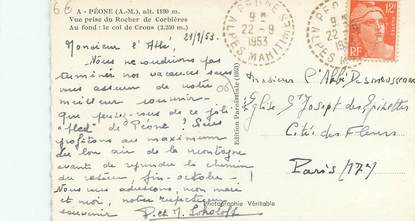 6€
A - PÉONE (A.-M.), alt. 1180 m.
Vue prise du Rocher de Corbières
Au fond : le col de Crous (2.250 m.)
21/9/53.
Monsieur l'Abbé,
Nous ne voudrions pas
terminer nos vacances sans
vous assurer de notre
meilleur souvenir.
que pensez-vous de ce joli
"bled" de Péone? Nous
profitons au maximum
du bon air de la montagne
avant de reprendre le chemin
du retour, fin-octobre!
Nous vous adressons, mon mari
et moi, notre respectueux
souvenir
P. et M. Sokoloff
Edition Parisienne (603)
Photographie Véritable
PEONE
22-9
1953
ALPES MARITIMES
PEONE
22-9
1953
ALPES MARITIMES
12F
RF
Monsieur l'Abbé
Eglise St Joseph des Epinettes
Cité des Fleurs
Paris (17e)